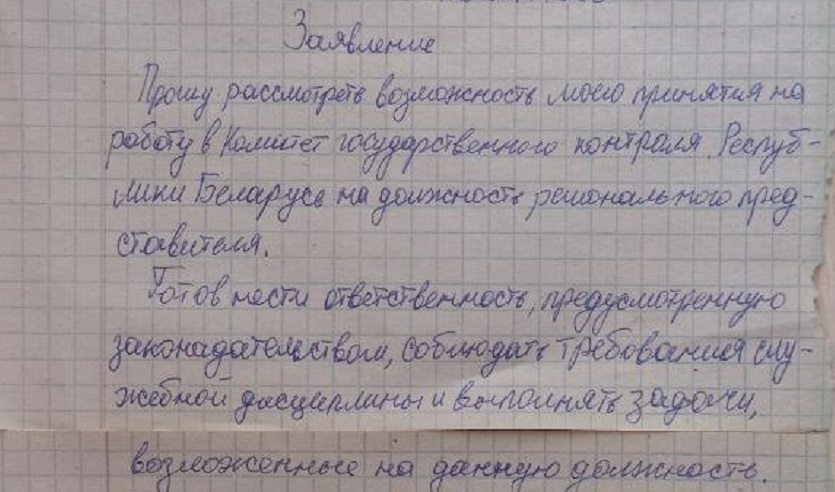 Заявление
Прошу рассмотреть возможность моего принятия на
работу в Комитет государственного контроля Респуб-
лики Беларусь на должность регионального пред-
ставителя.
Готов нести ответственность, предусмотренную
законадательством, соблюдать требования слу-
жебной дисциплины и выполнять задачи,
возложенные на данную должность.